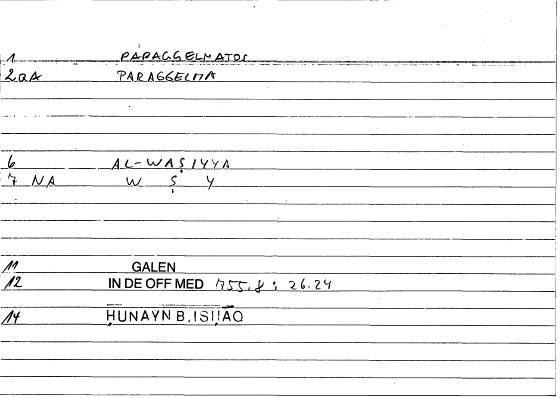 1 PAPAGGELMATOS
2aA PARAGGELMA
6 AL-WAṢIYYA
7 NA W Ṣ Y
11 GALEN
12 IN DE OFF MED 755.8 : 26.24
14 ḤUNAYN B. ISḤĀQ